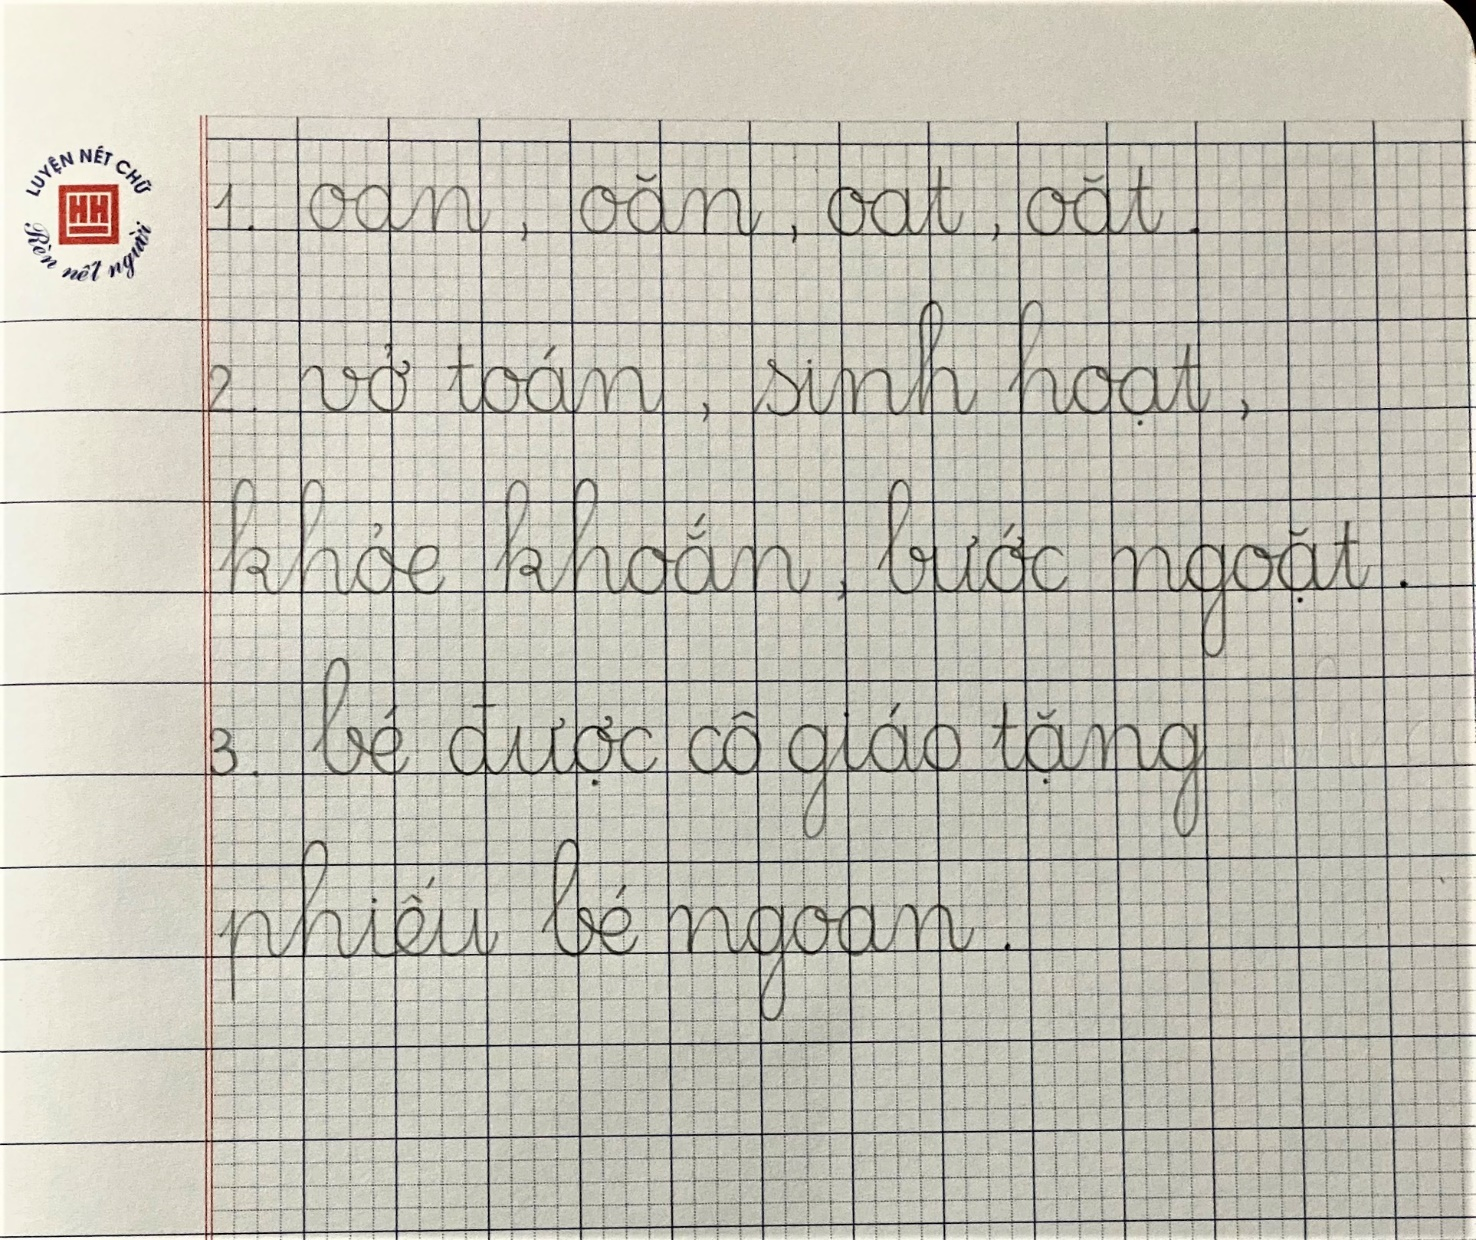 LUYỆN NÉT CHỮ
HH
Rèn nết người
1. oan, oăn, oat, oăt.
2. vở toán, sinh hoạt,
khỏe khoắn, bước ngoặt.
3. bé được cô giáo tặng
phiếu bé ngoan.